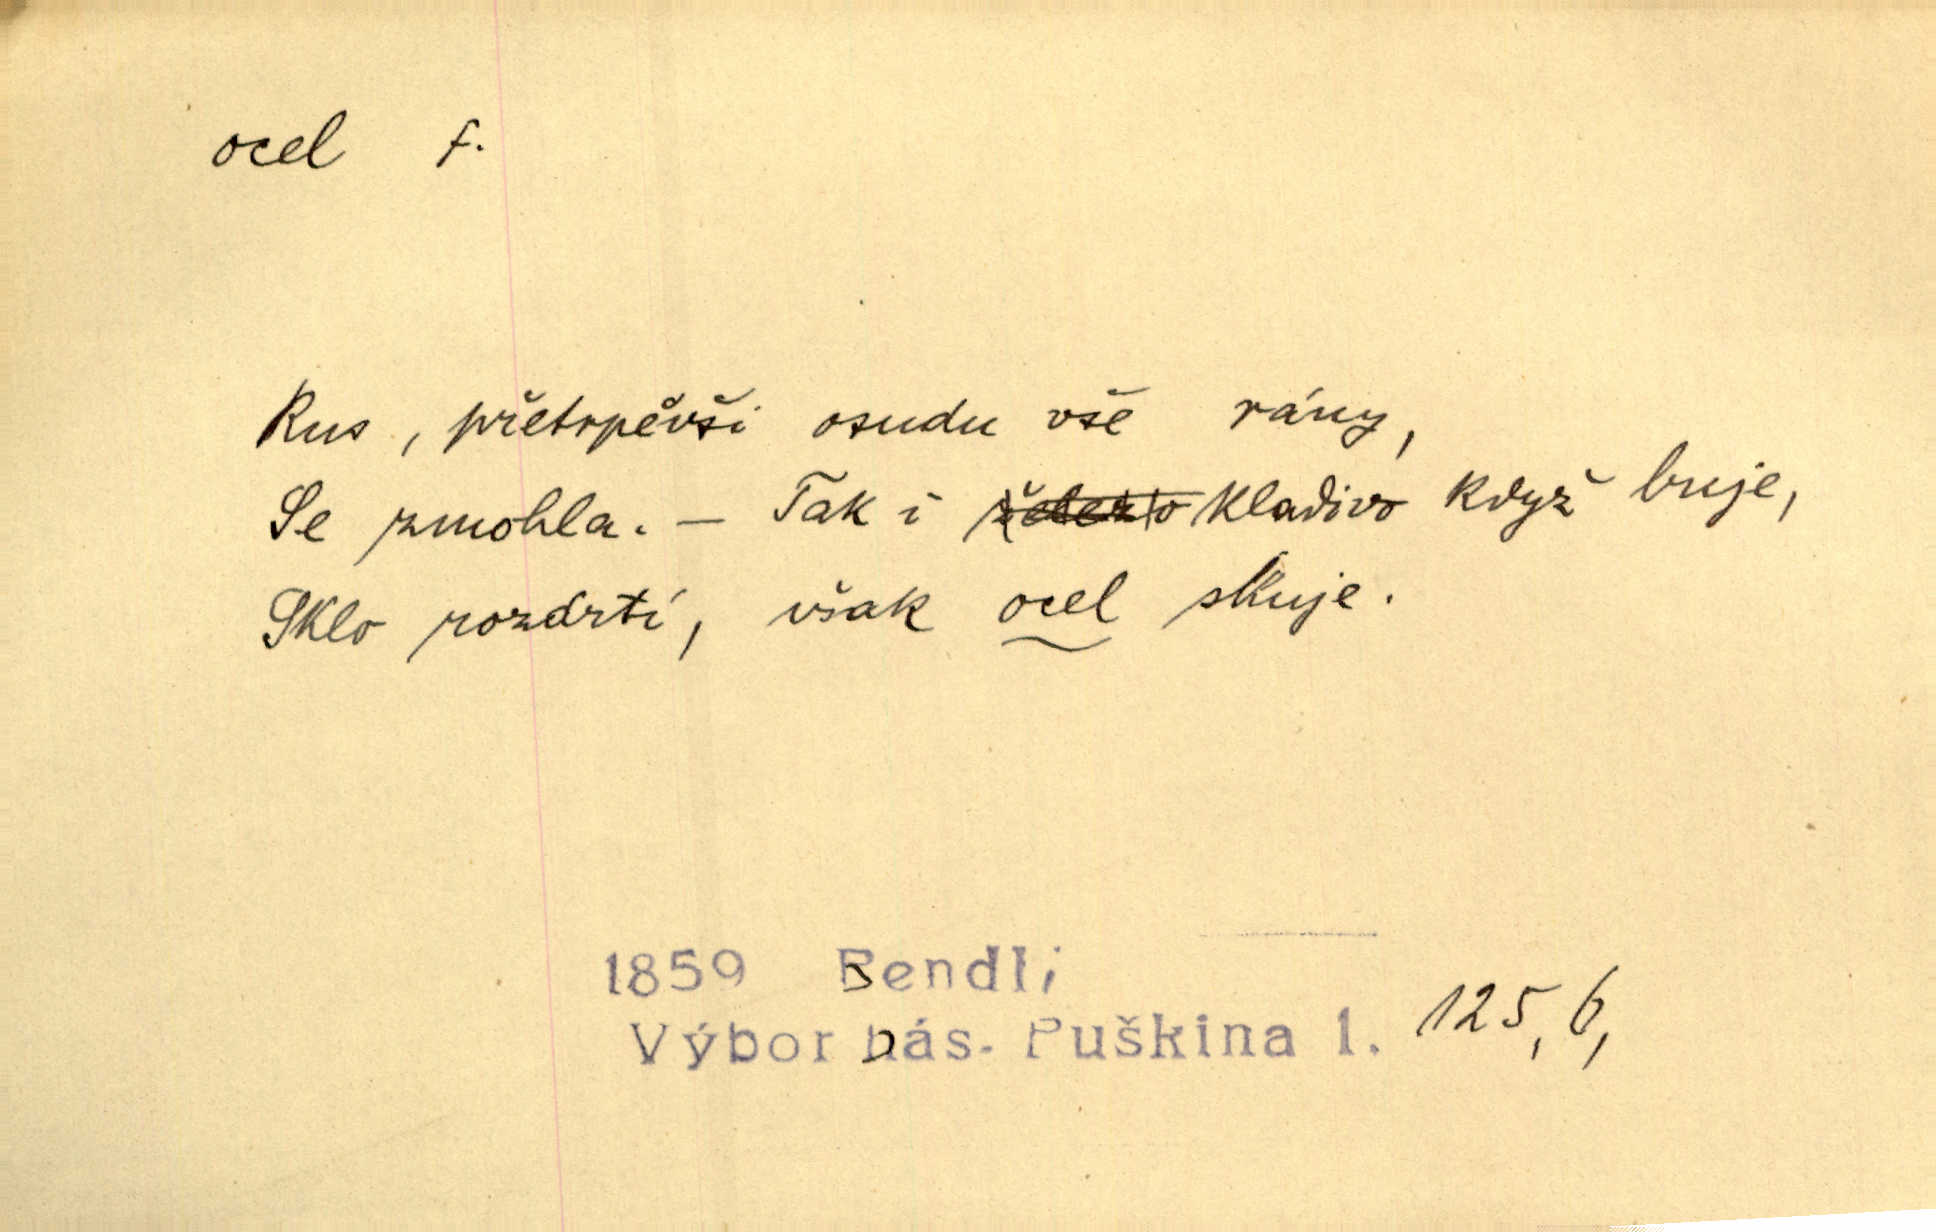 ocel f.
Rus, přetrpěvši osudu vše rány,
Se zmohla. – Tak i kladivo když buje,
Sklo rozdrtí, však ocel skuje.
1859 Bendl
Výbor bás. Puškina 1. 125, 6,